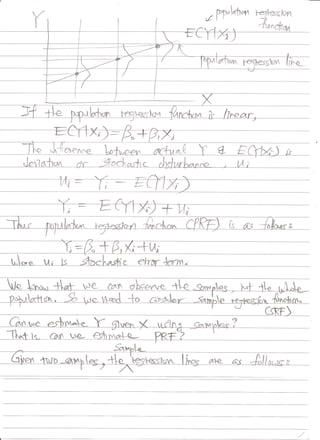 population regression
function
Y
E(Y|Xi)
population regression line
X
If the population regression function is linear,
E(Y|Xi)=β₀+β₁Xi
The difference between actual Y & E(Y|Xi) is
deviation or stochastic disturbance, ui
ui = Yi − E(Y|Xi)
Yi = E(Y|Xi) + ui
Thus population regression function (PRF) is as follows:
Yi=β₀+β₁Xi+ui
Where ui is stochastic error term.
We know that we can observe the samples, not the whole
population. So we need to consider sample regression function
(SRF)
Can we estimate Y given X using samples?
That is, can we estimate PRF?
sample
Given two samples, the regression lines are as follows: